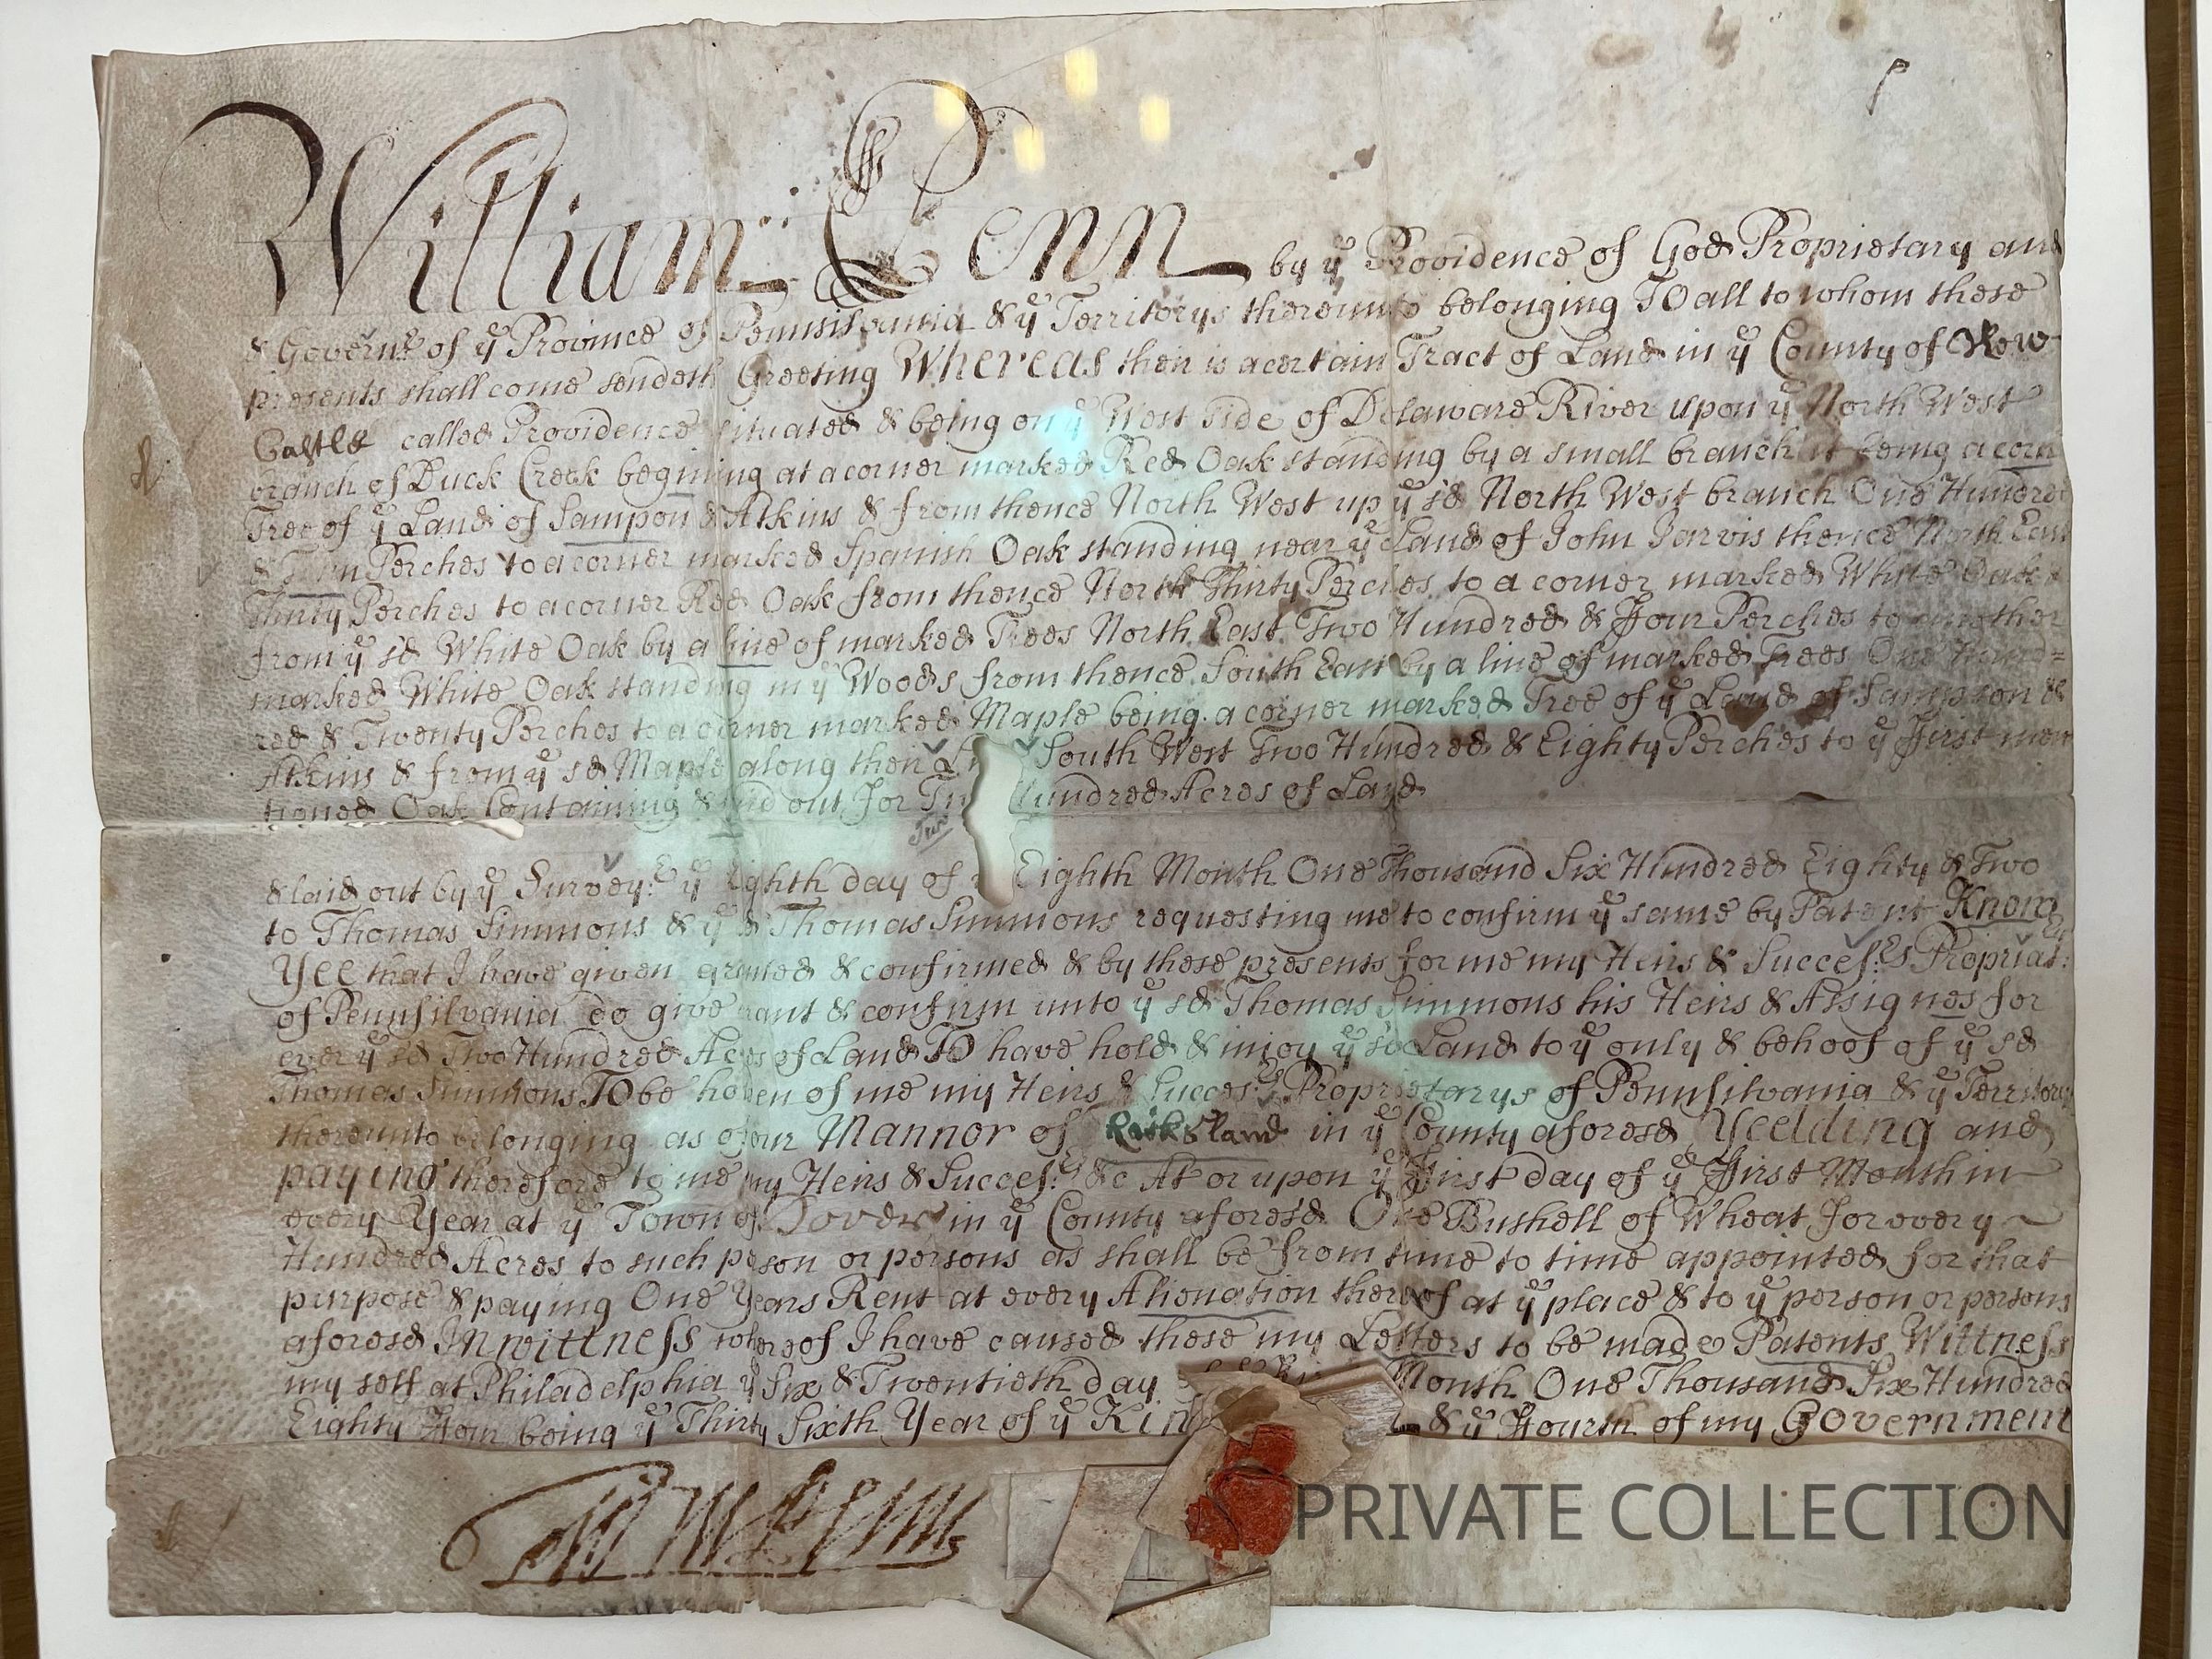 William Penn by yͤ Providence of God Proprietary and
& Govern:ͬ of yͤ Province of Pennsilvania & yͤ Territorys thereunto belonging TO all to whom these
presents shall come sendeth Greeting Whereas then is a certain Tract of Land in yͤ County of New
Castle called Providence situated & being on yͤ West side of Delaware River upon yͤ North West
branch of Duck Creek begining at a corner marked Red Oak standing by a small branch it being a corn
Tree of yͤ Land of Sampon & Atkins & from thence North West up yͤ sd North West branch One Hundred
& Perches to a corner marked Spanish Oak standing near yͤ Land of John Jarvis thence North East
Thirty Perches to a corner Red Oak from thence North Thirty Perches to a corner marked White Oak &
from yͤ sd White Oak by a line of marked Trees North East Two Hundred & Four Perches to another
marked White Oak standing in yͤ Woods from thence South East by a line of marked Trees One Hund=
red & Twenty Perches to a corner marked Maple being a corner marked Tree of yͤ Land of Sampson &
Atkins & from yͤ sd Maple along their South West Two Hundred & Eighty Perches to yͤ First men
tioned Oak Containing & laid out for Hundred Acres of Land
Two
& laid out by yͤ Survey:ͬ yͤ Eighth day of Eighth Month One Thousand Six Hundred Eighty & Two
to Thomas Simmons & yͤ sd Thomas Simmons requesting me to confirm yͤ same by Patent Know
Yee that I have given granted & confirmed & by these presents for me my Heirs & Succes:ͬˢ Propriat:ͬˢ
of Pennsilvania do give grant & confirm unto yͤ sd Thomas Simmons his Heirs & Assignes for
ever yͤ sd Two Hundred Acres of Land TO have hold & injoy yͤ sd Land to yͤ only & behoof of yͤ sd
Thomas Simmons TO be holden of me my Heirs & Succes:ͬˢ Proprietarys of Pennsilvania & yͤ Territory
thereunto belonging as of our Mannor of Rocksland in yͤ County aforesd Yeelding and
paying therefore to me my Heirs & Succes:ͬˢ &c At or upon yͤ First day of yͤ First Month in
every Year at yͤ Town of Dover in yͤ County aforesd One Bushell of Wheat for every
Hundred Acres to such person or persons as shall be from time to time appointed for that
purpose & paying One Years Rent at every Alienation thereof at yͤ place & to yͤ person or persons
aforesd In wittness whereof I have caused these my Letters to be made Patents Wittness
my self at Philadelphia yͤ Six & Twentieth day Month One Thousand Six Hundred
Eighty Four being yͤ Thirty Sixth Year of yͤ Kin & yͤ Fourth of my Government
Wm Penn
PRIVATE COLLECTION